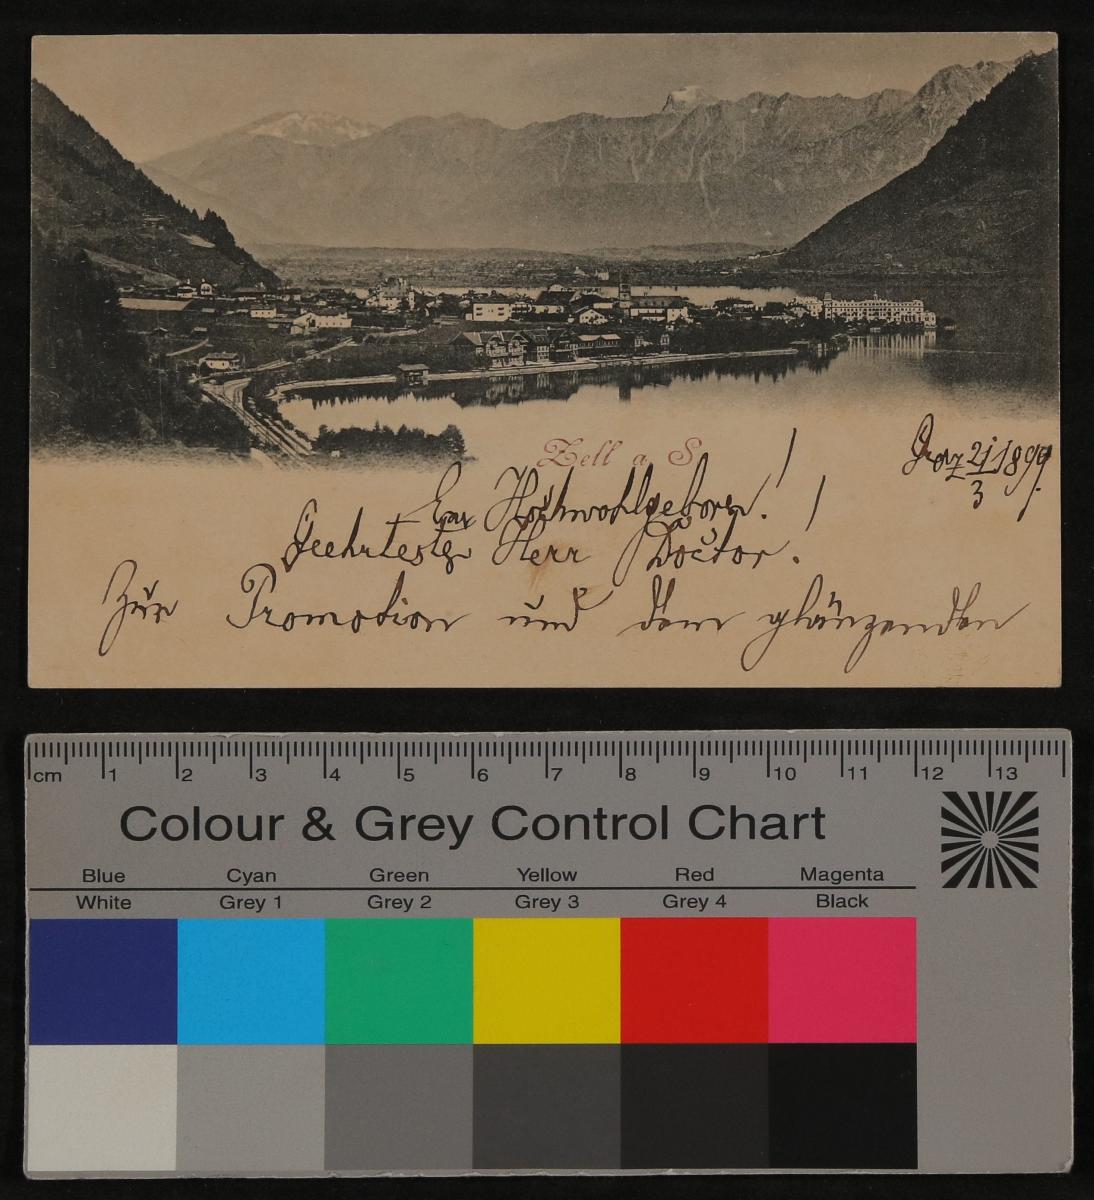 Zell a. S.
Graz 21/3 1899.
Euer Hochwohlgeboren!
Geehrtester Herr Doctor!
Zur Promotion und dem glänzenden
cm 1 2 3 4 5 6 7 8 9 10 11 12 13
Colour & Grey Control Chart
Blue Cyan Green Yellow Red Magenta
White Grey 1 Grey 2 Grey 3 Grey 4 Black